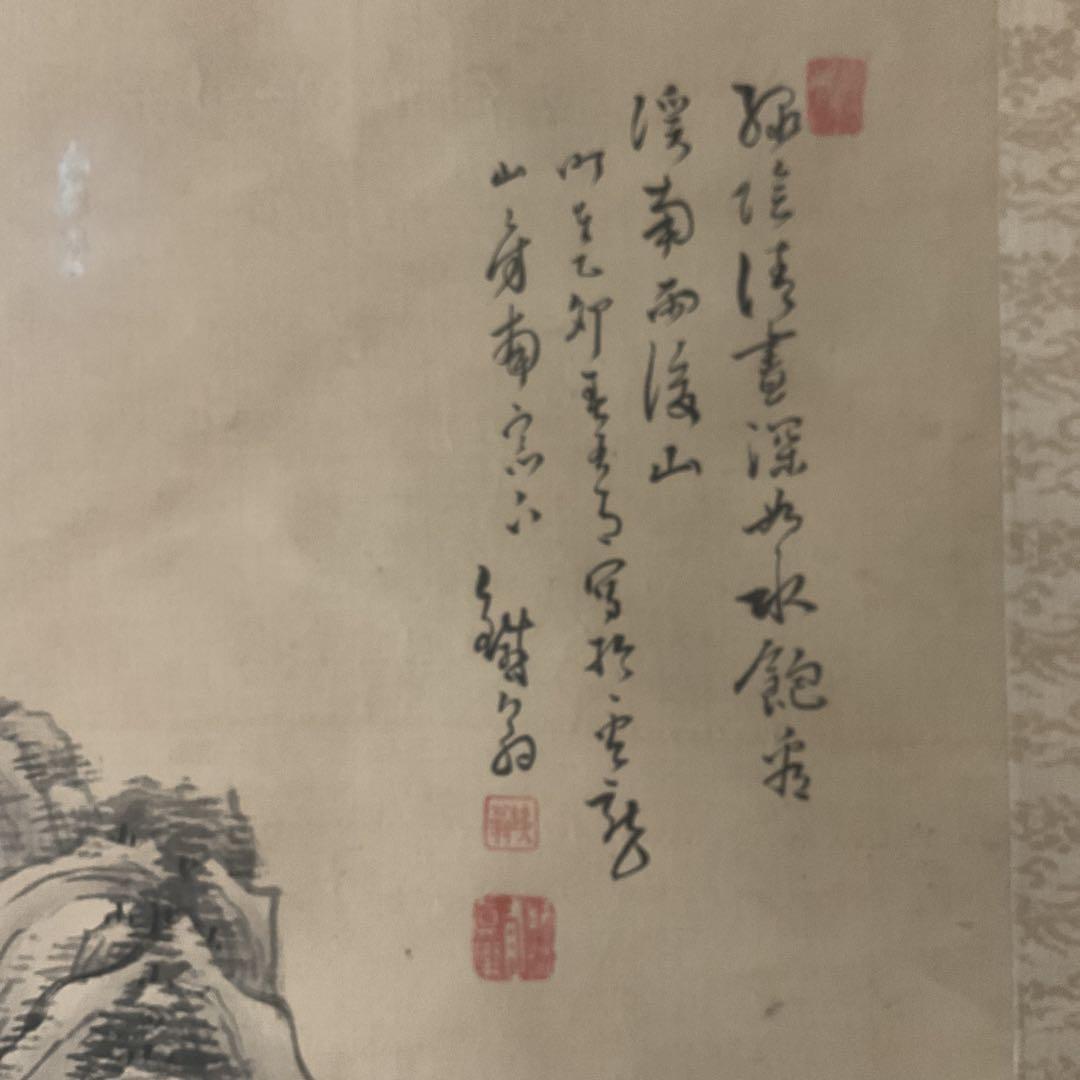 綠陰清晝深如水飽看
溪南雨後山
時在乙卯春三月寫於雲龍
山房南窓下
鐵翁